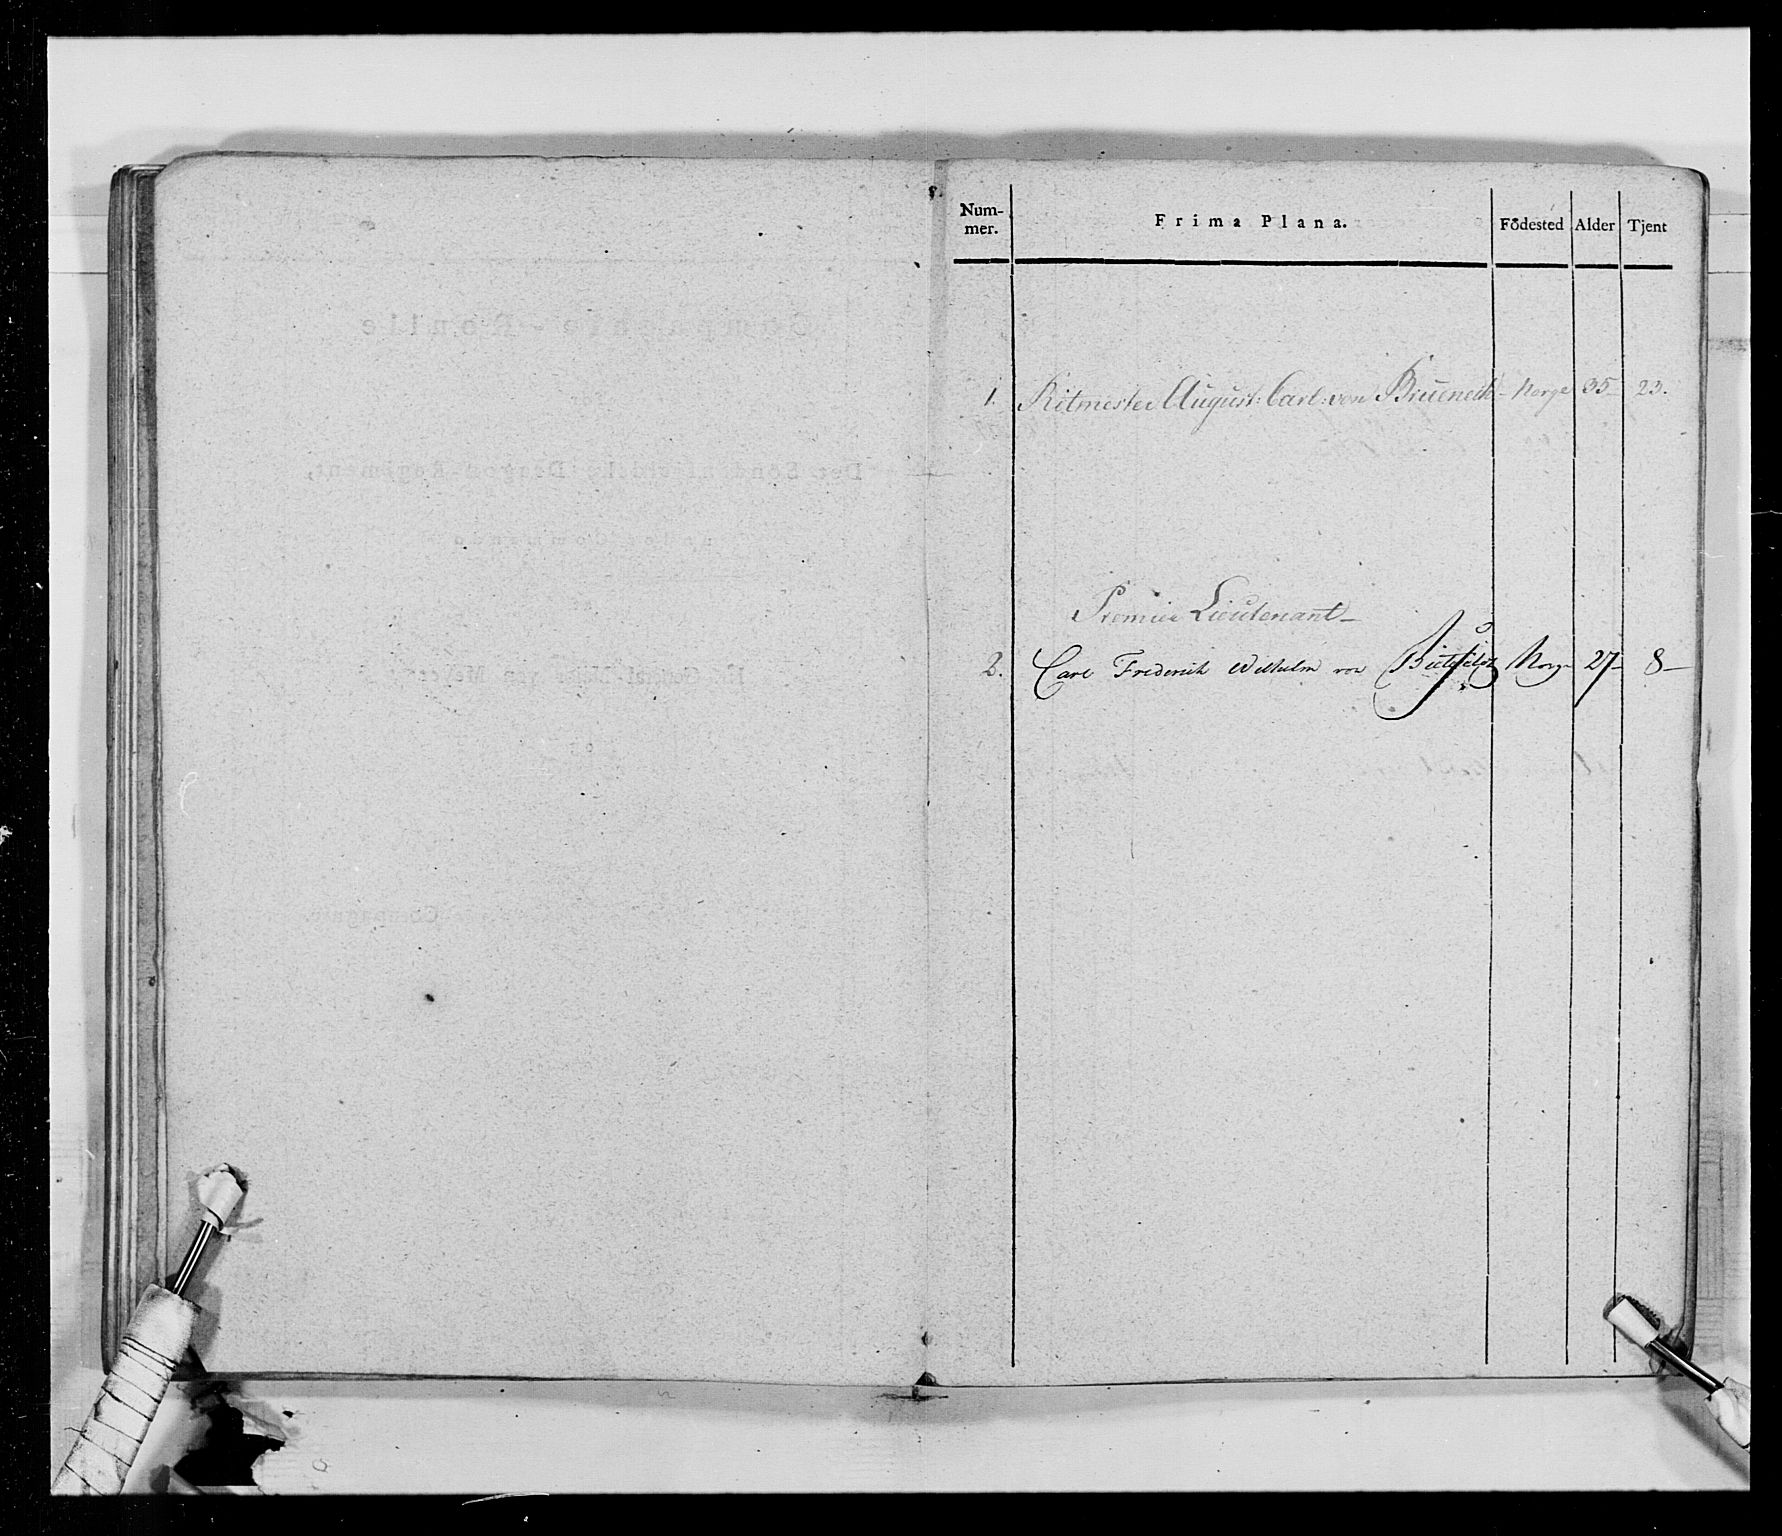 Num-
mer.
Frima Plana.
Födested
Alder
Tjent
1. Ritmester August: Carl: von Brueneck - Norge 35- 23.
Premier Lieutenant-
2. Carl Frederich Wilhelm von Norge 27- 8-